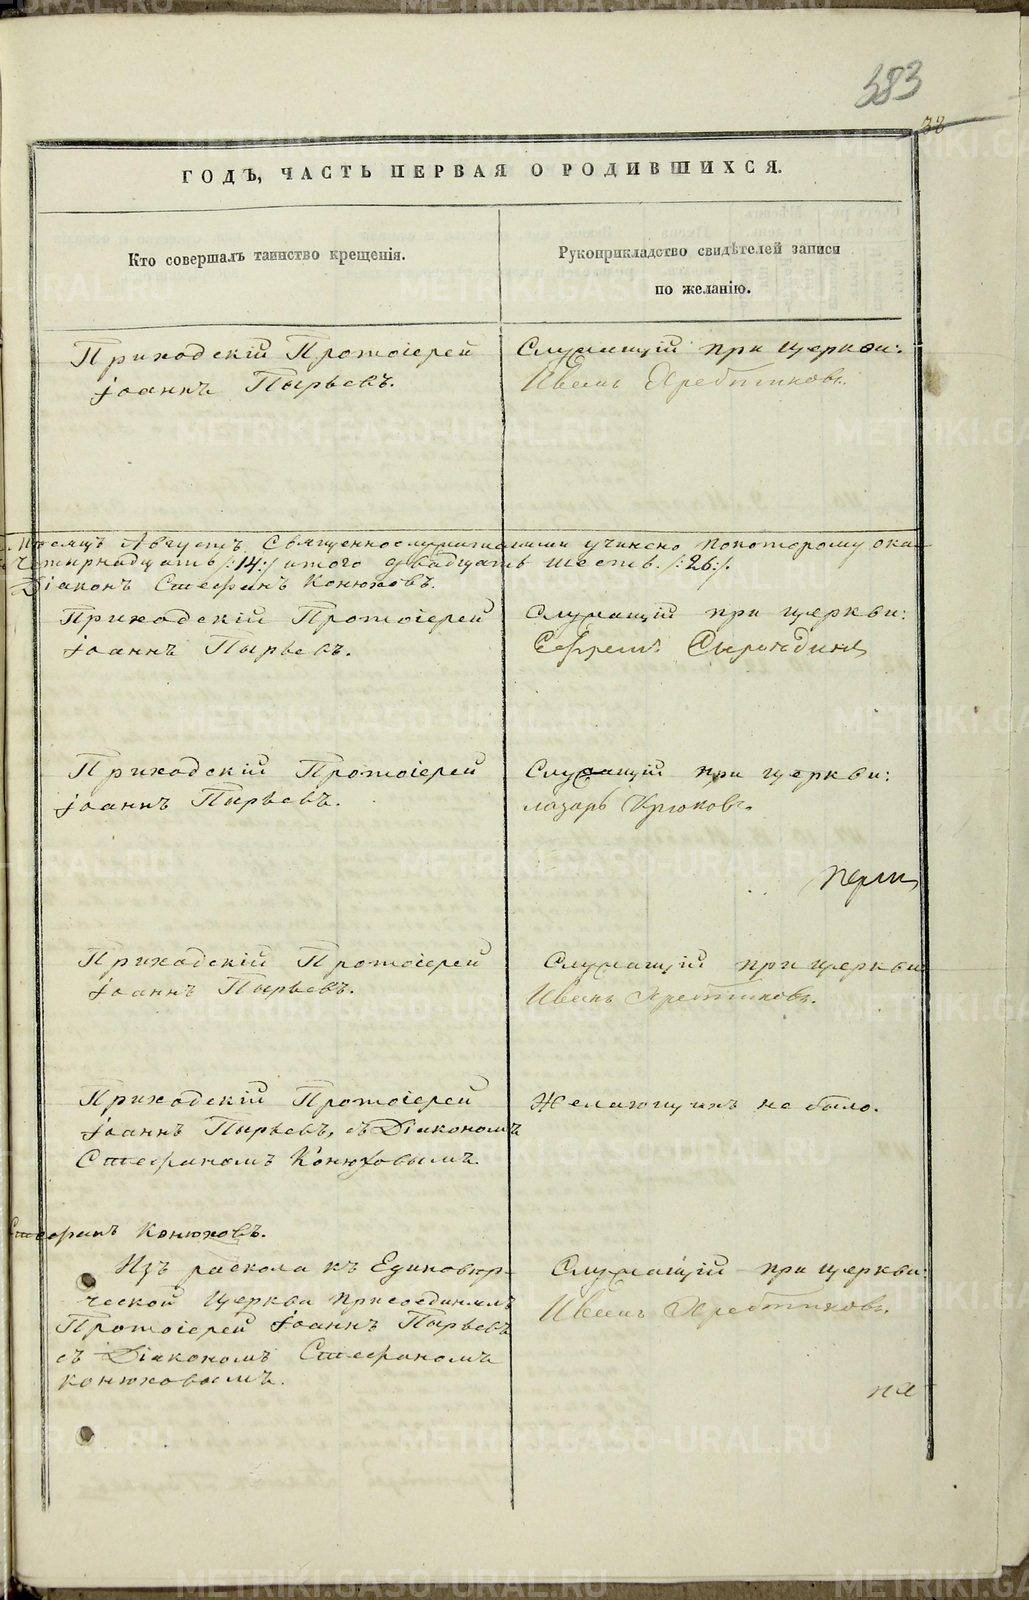 383
38
ГОДЪ, ЧАСТЬ ПЕРВАЯ О РОДИВШИХСЯ.
Кто совершалъ таинство крещенія.
Рукоприкладство свидѣтелей записи
по желанію.
Приходскій Протоіерей
Іоаннъ Пырьевъ.
Служащій при церкви:
Иванъ
Мѣсяцъ Августъ Священнослужителями учинено покоторому ока-
Четырнадцать /:14:/ итого двадцать шесть. /:26:/.
Діаконъ Стефанъ Конюховъ.
Приходскій Протоіерей
Іоаннъ Пырьевъ.
Служащій при церкви:
Ефремъ
Приходскій Протоіерей
Іоаннъ Пырьевъ.
Служащій при церкви:
лазарь Крюковъ.
Приходскій Протоіерей
Іоаннъ Пырьевъ.
Служащій при церкви
Иванъ
Приходскій Протоіерей
Іоаннъ Пырьевъ, съ Діакономъ
Стефаномъ Конюховымъ.
Желающихъ не было.
Стефанъ Конюховъ.
Изъ раскола къ Единовѣр-
ческой Церкви присоединялъ
Протоіерей Іоаннъ Пырьевъ
съ Діакономъ Стефаномъ
Конюховымъ.
Служащій при церкви:
Иванъ
на
METRIKI.GASO-URAL.RU